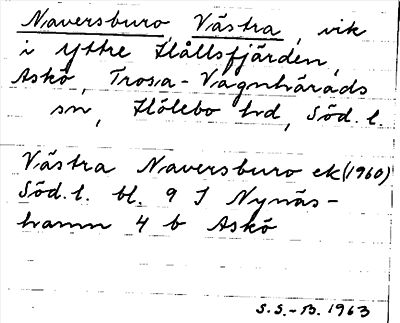 Naversburo, Västra, vik
i Yttre Hållsfjärden,
Askö, Trosa-Vagnhärads
sn, Hölebo hd, Söd. l.
Västra Naversburo ek (1960)
Söd. l. bl. 9 I Nynäs-
hamn 4 b Askö
S.S.-B. 1963